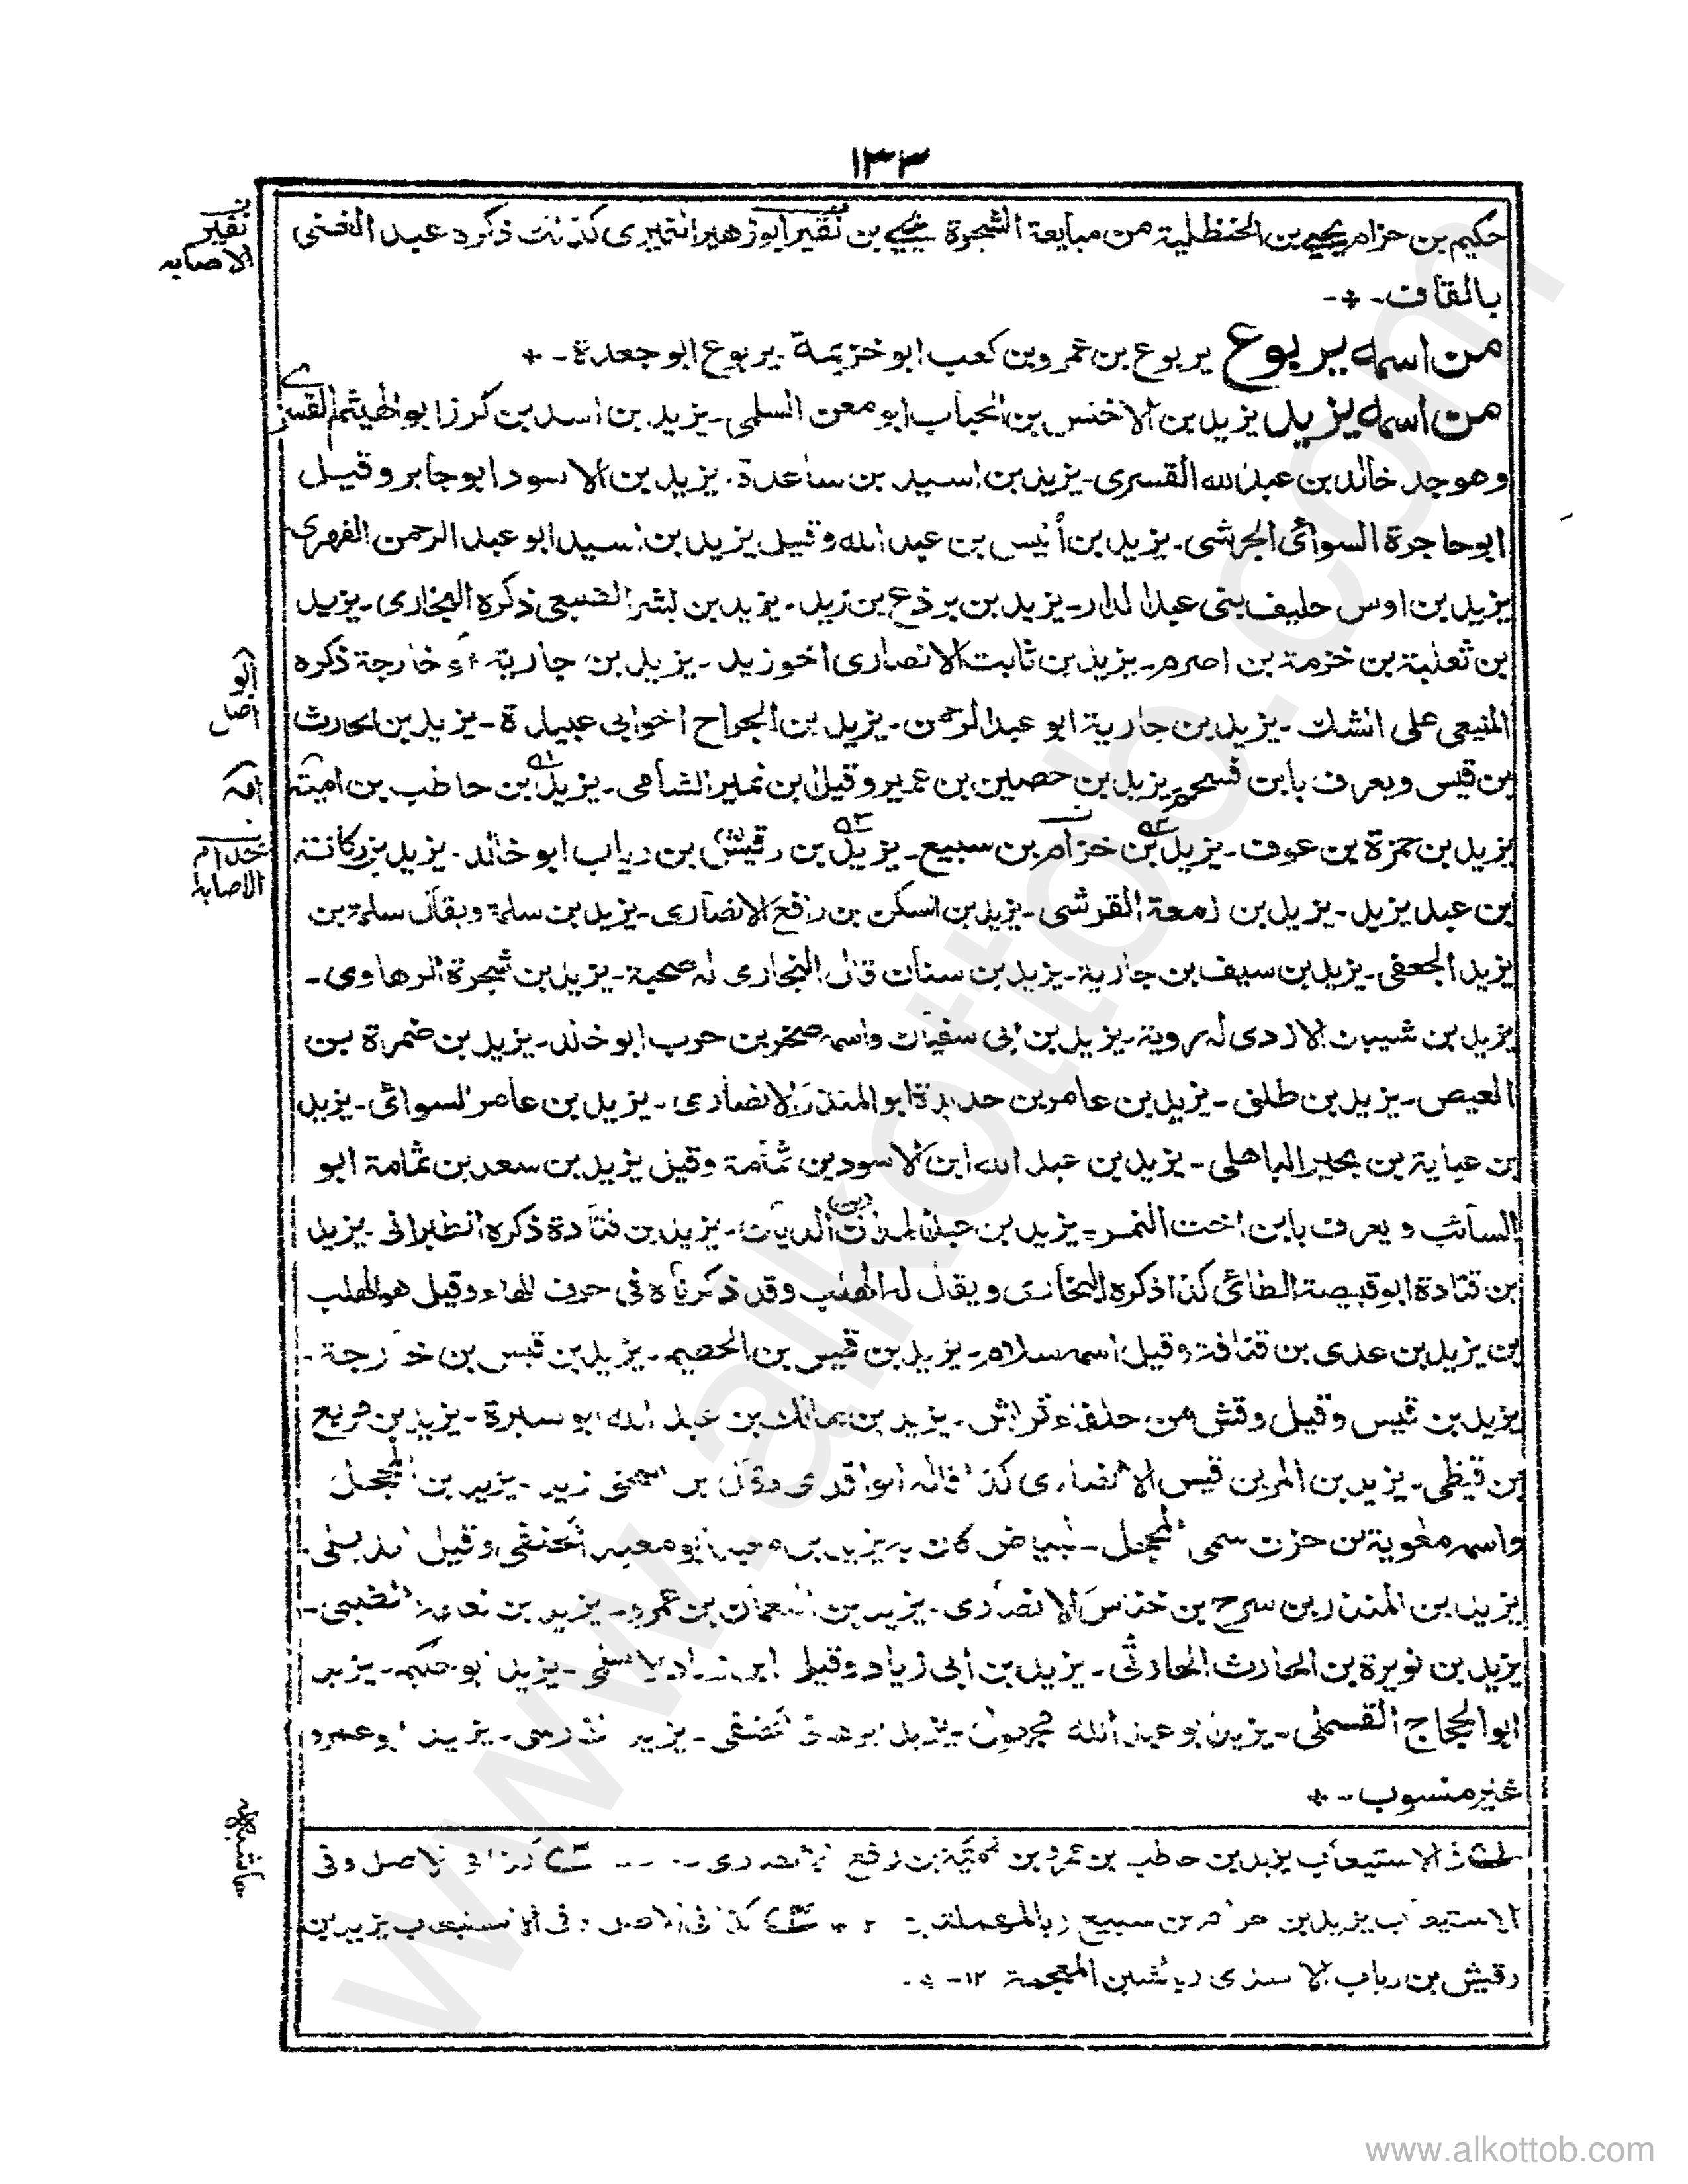 ١٣٣
حكيم بن حزام يحيى بن الحنظلية من مبايعة الشجرة يحيى بن نقير ابو زهير النميري كذلك ذكره عبد الغني
نفير
الاصابه
بالقاف -
من اسمه يربوع يربوع بن عمرو بن كعب ابو خزيمة - يربوع ابو جعدة -
من اسمه يزيد يزيد بن الاخنس بن الحباب ابو معن السلمي - يزيد بن اسد بن كرز ابو الهيثم القسري
وهو جد خالد بن عبد الله القسري - يزيد بن اسيد بن ساعدة - يزيد بن الاسود ابو جابر وقيل
ابو حاجرة السوائي الجرشي - يزيد بن أنيس بن عبد الله وقيل يزيد بن اسيد ابو عبد الرحمن الفهري
يزيد بن اوس حليف بني عبد الدار - يزيد بن برذع بن زيد - يزيد بن بشر الضبعي ذكره البخاري - يزيد
بن ثعلبة بن خزمة بن اصرم - يزيد بن ثابت الانصاري اخو زيد - يزيد بن جارية او خارجة ذكره
المنيعي على الشك - يزيد بن جارية ابو عبد الرحمن - يزيد بن الجراح اخو ابي عبيدة - يزيد بن الحارث
بن قيس ويعرف بابن فسحم - يزيد بن حصين بن عمير وقيل ابن نمير الشامي - يزيد بن حاطب بن امية
امه
يزيد بن حمزة بن عوف - يزيد بن خزام بن سبيع - يزيد بن رقيش بن رياب ابو خالد - يزيد بن ركانة
خدام
الاصابه
بن عبد يزيد - يزيد بن زمعة القرشي - يزيد بن السكن بن رافع الانصاري - يزيد بن سلمة ويقال سلمة بن
يزيد الجعفي - يزيد بن سيف بن جارية - يزيد بن سنان قال البخاري له صحبة - يزيد بن شجرة الرهاوي -
يزيد بن شيبان الازدي له روية - يزيد بن ابي سفيان واسمه صخر بن حرب ابو خالد - يزيد بن ضمرة بن
العيص - يزيد بن طلق - يزيد بن عامر بن حديدة ابو المنذر الانصاري - يزيد بن عامر السوائي - يزيد
بن عباية بن بحير الباهلي - يزيد بن عبد الله ابن الاسود بن ثمامة وقيل يزيد بن سعد بن ثمامة ابو
السائب ويعرف بابن اخت النمر - يزيد بن عبد المدان الديان - يزيد بن قتادة ذكره الطبراني - يزيد
بن قتادة ابو قبيصة الطائي كذا ذكره البخاري ويقال له الهلب وقد ذكرناه في حرف الهاء وقيل هو الهلب
بن يزيد بن عدي بن قنافة وقيل اسمه سلامة - يزيد بن قيس بن الخطيم - يزيد بن قيس بن خارجة -
يزيد بن قيس وقيل وقش من حلفاء قريش - يزيد بن مالك بن عبد الله ابو سبرة - يزيد بن مربع
بن قيظي - يزيد بن المزين قيس الانصاري كذا قاله الواقدي وقال ابن اسحق زيد - يزيد بن المحجل
واسمه معوية بن حزن سمى المحجل لبياض كان به يزيد بن معبد ابو معبد الحنفي وقيل
يزيد بن المنذر بن سرح بن خناس الانصاري - يزيد بن النعمان بن عمرو - يزيد بن نعامة الضبي -
يزيد بن نويرة بن الحارث الحارثي - يزيد بن ابي زياد وقيل ابن زياد الاسلمي - يزيد ابو حكيم - يزيد
ابو الحجاج القسملي - يزيد ابو عبد الله مجهول - يزيد - يزيد - يزيد ابو عمرو
غير منسوب -
في الاستيعاب يزيد بن حاطب بن عمرو بن امية بن رافع الانصاري - كذا في الاصل وفي
الاستيعاب يزيد بن حرام بن سبيع (بالمهملة) كذا في الاصل وفي الاستيعاب يزيد بن
رقيش بن رباب الاسدي (بالشين المعجمة ١٢ -
www.alkottob.com
www.alkottob.com